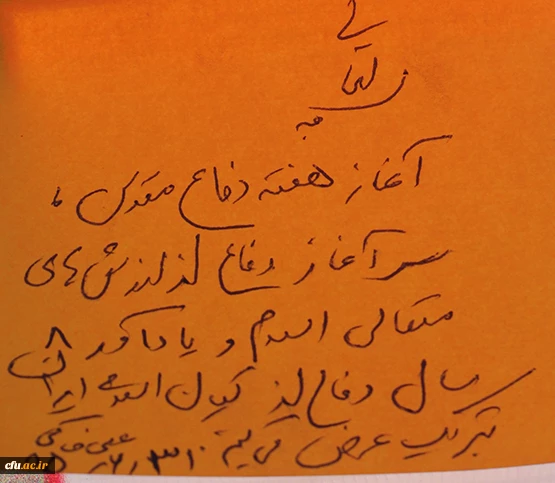 آغاز هفته دفاع مقدس،
سر آغاز دفاع از ارزش های
متعالی اسلام و یادآور ۸
سال دفاع از کیان اسلامی ایران
تبریک عرض می کنیم ۳۱ر۶ر
cfu.ac.ir